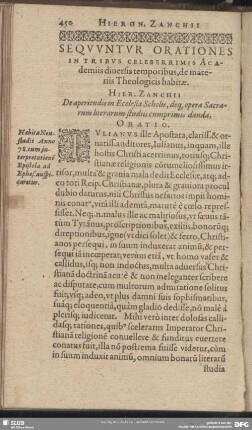 450 HIERON. ZANCHII
SEQVVNTVR ORATIONES
IN TRIBVS CELEBERRIMIS ACA-
demiis diuersis temporibus, de mate-
riis Theologicis habitæ.
HIER. ZANCHII
De aperiendis in Ecclesia Scholis, deq; opera Sacra-
rum literarum studiis cumprimis danda,
ORATIO.
Habita Neu-
stadii Anno
78. cum in-
terpretationē
Epistolæ ad
Ephes. auspi-
caretur.
IVLIANVS ille Apostata, clariss. & or-
natiss. auditores, Iulianus, inquam, ille
hostis Christi acerrimus, totiusq; Christi-
anæ religionis contumeliosissimus ir-
risor, multa & grauia mala dedit Ecclesiæ, atq; ad-
eo toti Reip. Christianæ, plura & grauiora procul
dubio daturus, nisi Christus imperii eius homini
cursum, cum vita illi ademta, maturè è cœlo repres-
sisset. Neq;
tùm Tyrannus, proscriptionibus, exiliis, bonorūq;
direptionibus, igne (vt dici solet) & ferro, Christi-
anos persequi, in suum induxerat animū, & perse-
qui iā inceperat; verùm etiā, vt homo vafer &
callidus, isq; non indoctus, multa aduersus Christi-
anā doctrinā
ac disputare, cum multorum admiratione solitus
fuit; vsq; adeo, vt plus damni suis sophismatibus,
suāq; eloquentiā, quàm gladio dedisse, nō malè à
plerisq; iudicetur. Mihi verò inter dolosas calli-
dasq; rationes, quib⁹ sceleratus Imperator Christi-
anā religionē conuellere & funditus euertere
conatus fuit, illa nō postrema fuisse videtur, cùm
in suum induxit animū, omnium bonarū literarū
studia